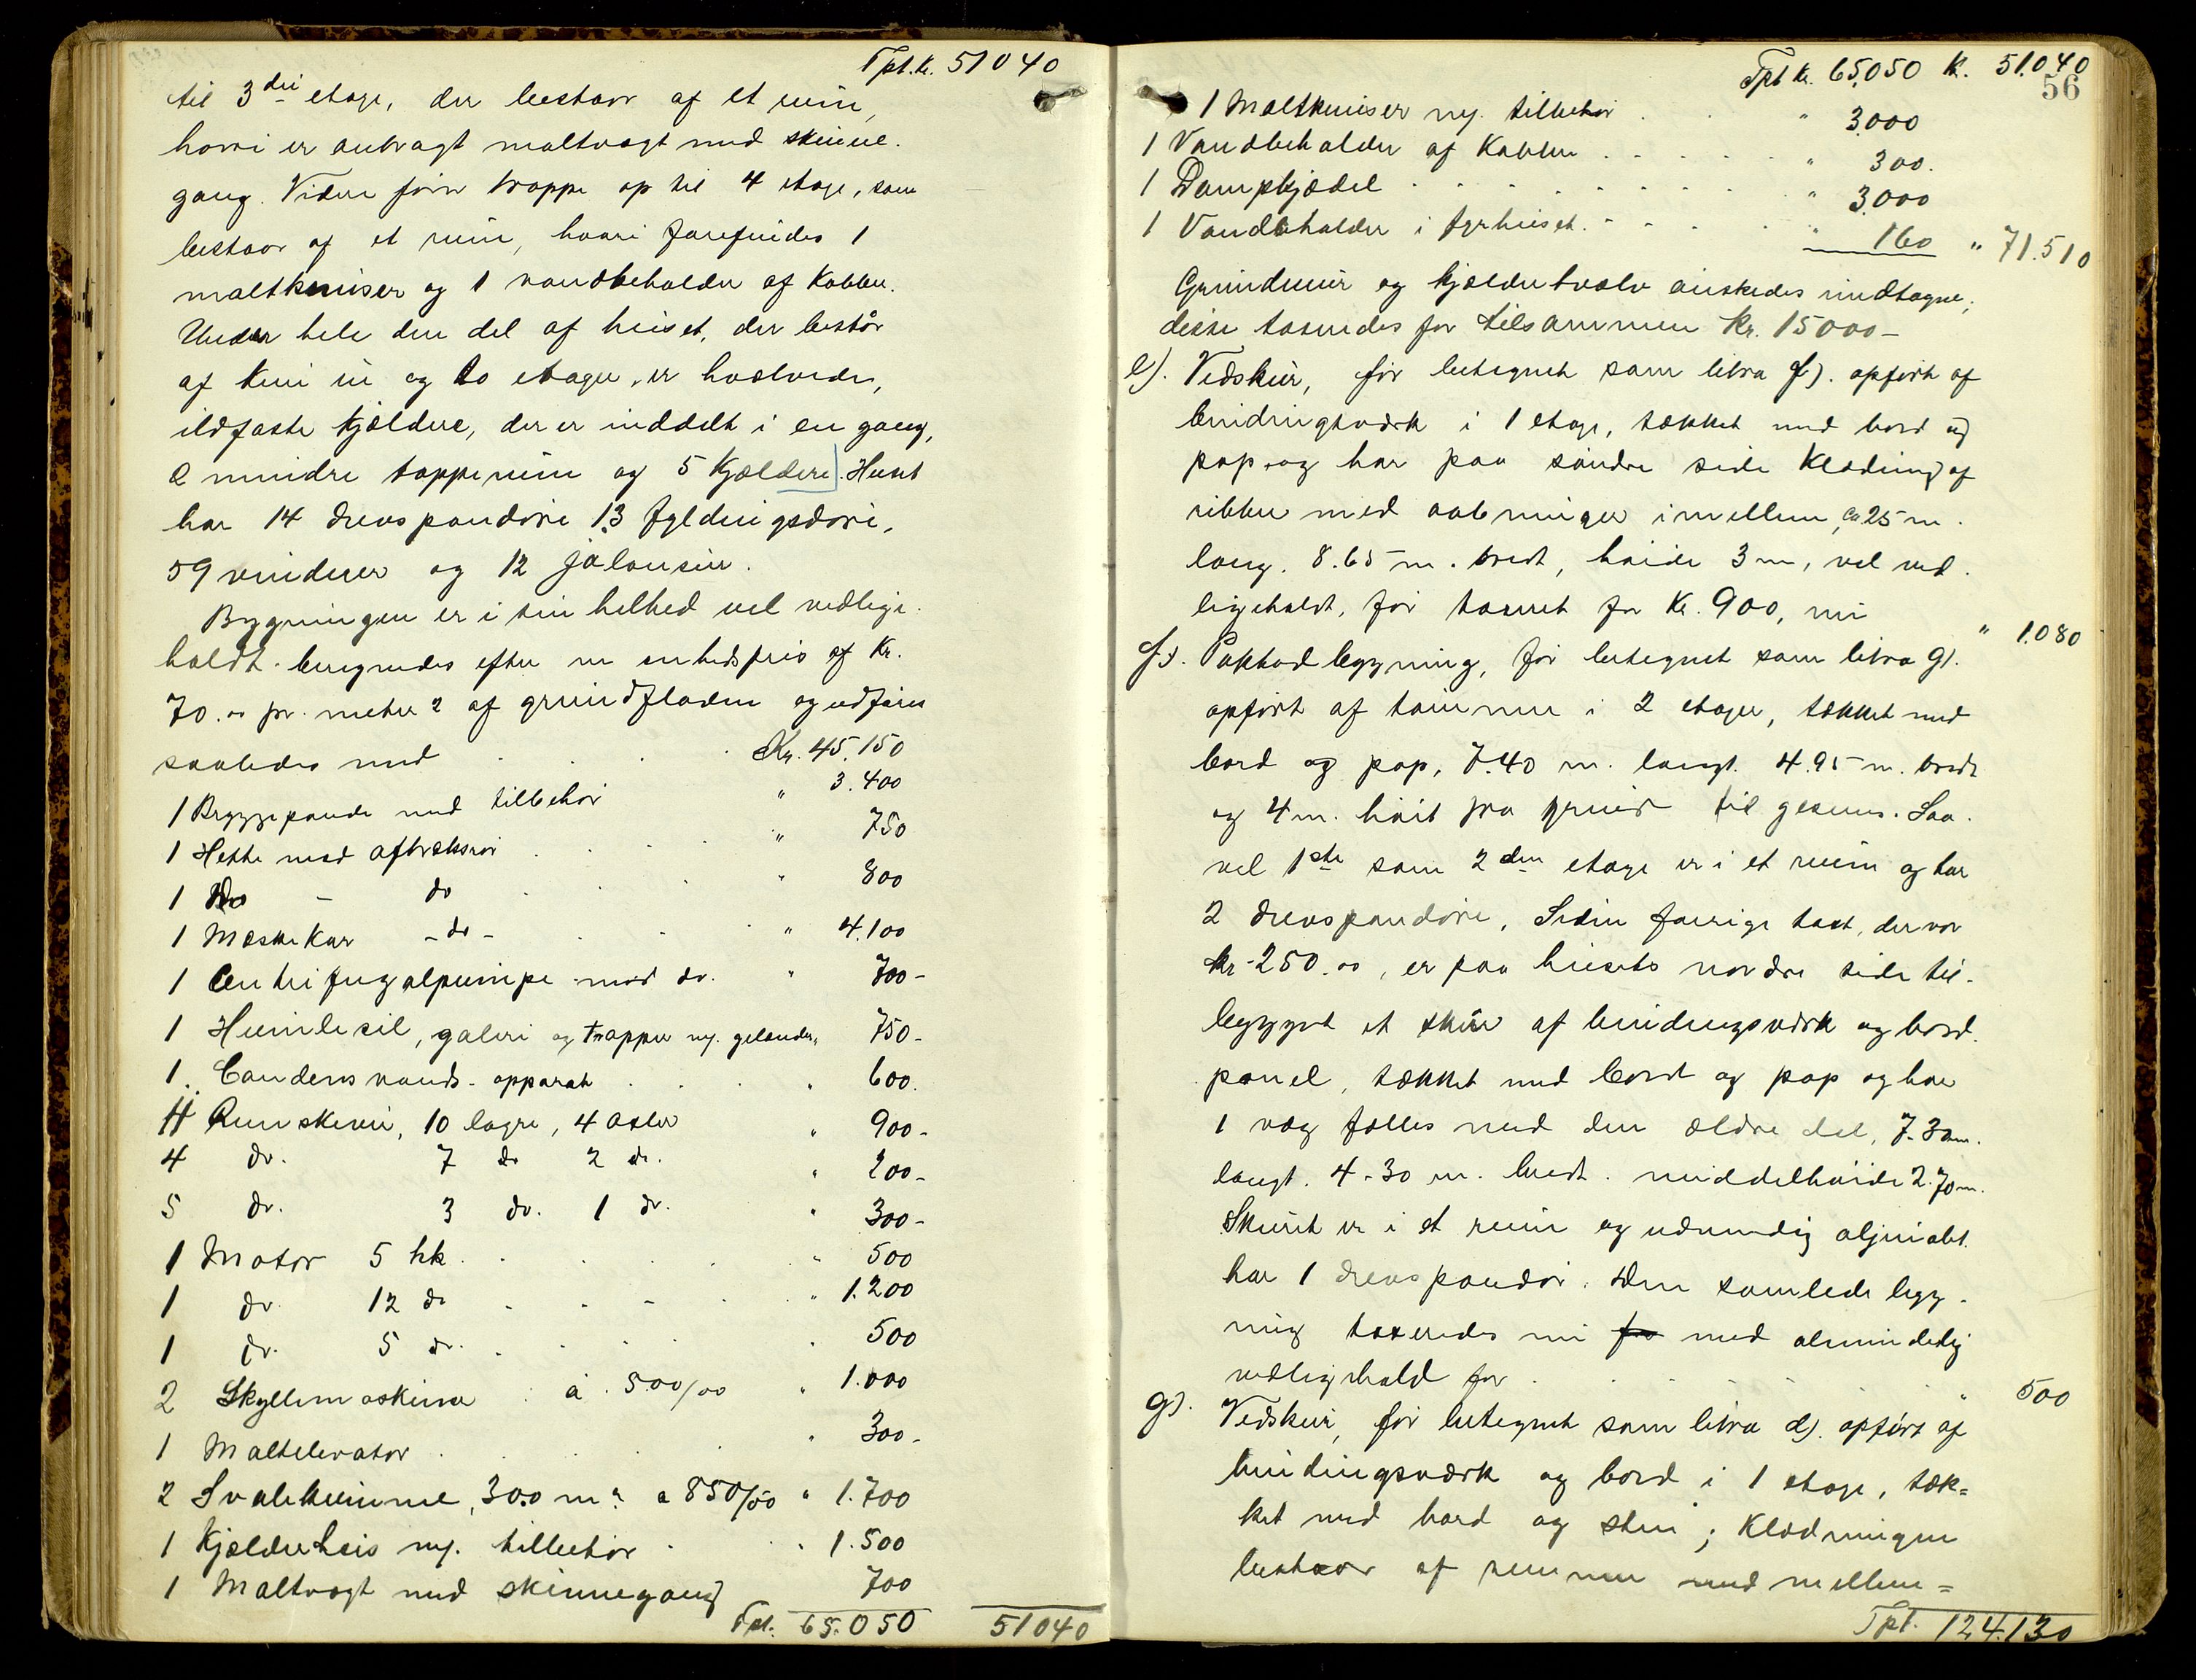 Tpt. kr. 51040
til 3die etage, der bestaar af et rum,
hvori er anbragt maltvogt med skinne-
gang. Videre fører trappe op til 4 etage, som
bestaar af et rum, hvori forefindes 1
maltknuser og 1 vandbeholder af Kobber.
Under hele den del af huset, der består
af kun en og to etager, er hvælvede,
ildfaste kjældere, der er inddelt i en gang,
2 mindre tapperum og 5 Kjældere. Huset
har 14 drevspandøre 13 fyldingsdøre,
59 vinduer og 12 jalousier.
Bygningen er i sin helhed vel vedlige-
holdt. beregnedes efter en enhedspris af Kr.
70.00 pr. meter 2 af grundfladen og udføres
saaledes med Kr. 45.150
1 Bryggepande med tilbehør " 3.400
1 Hette med aftræksrør " 750
1 Do - do " 800
1 Mæskekar - do - " 4.100
1 Centrifugalpumpe med do. " 700-
1 Humlesil, galeri og trapper m/ gelænder " 750-
1. Condensvands-apparat " 600.
11 Remskiver, 10 lagre, 4 axler " 900-
4 do. 7 do 2 do. " 200-
5 do. 3 do. 1 do. " 300-
1 Motor 5 hk. " 500
1 do. 12 do " 1.200
1 do. 5 do. " 500
2 Skyllemaskiner à 500/00 " 1.000
1 Maltelevator " 300-
2 Svalekummer, 30.0 m2 a 850/00 " 1.700
1 Kjælderheis m/ tilbehør " 1.500
1 Maltvogt med skinnegang 700
Tpt. 65.050 51040
Tpt kr. 65,050 K. 51.040
56
1 Maltknuser m/ tilbehør " 3.000
1 Vandbeholder af Kobber " 300.
1 Dampkjædel " 3.000
1 Vandbeholder i fyrhuset. " 160 " 71.510
Grundmur og kjælderhvælv ønskedes indtagne;
disse taxeredes for tilsammen Kr. 15000-
e). Vedskur, før betegnet som litra f). opført af
bindingsværk i 1 etage, tækket med bord og
pap, og har paa søndre side Klædning af
ribber med aabninger imellem, ca 25 m.
lang. 8.65 m. bredt, høide 3 m, vel ved-
ligeholdt, før taxeret for Kr. 900, nu " 1.080
f). Pakbodbygning, før betegnet som litra g).
opført af tømmer i 2 etager, tækket med
bord og pap, 7.40 m. langt. 4.95 m. bredt
og 4 m. høit fra grund til gesims. Saa-
vel 1ste som 2den etage er i et rum og har
2 drevspandøre. Siden forrige taxt, der var
kr-250.00, er paa husets nordre side til-
bygget et skur af bindingsværk og bord-
panel, tækket med bord og pap og har
1 væg fælles med den ældre del, 7.30m.
langt. 4-30 m. bredt. middelhøide 2.70m.
Skuret er i et rum og udvendig oljemalet.
har 1 drevspandør. Den samlede byg-
ning taxeredes nu for med almindelig
vedligehold for " 500
g). Vedskur, før betegnet som litra d). opført af
bindingsværk og bord i 1 etage, tæk=
ket med bord og sten; Klædningen
bestaar af remmer med mellem=
Tpt. 124.130